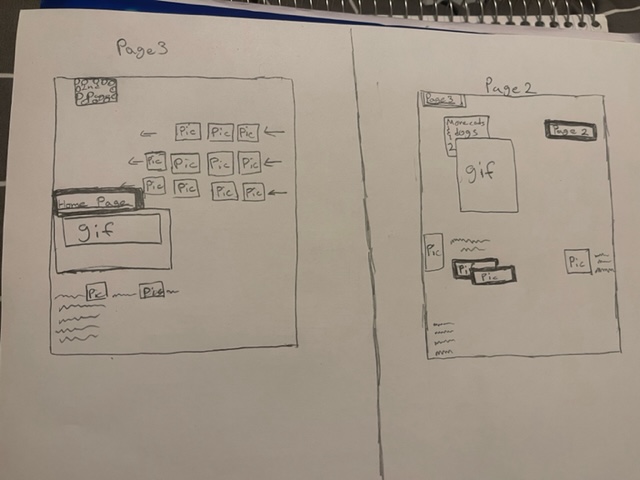 Page3
Pic Pic Pic
Pic Pic Pic Pic
Pic Pic Pic Pic
Home Page
gif
Pic Pic
Page 2
Page3
More cats
& dogs
2
Page 2
gif
Pic
Pic
Pic
Pic